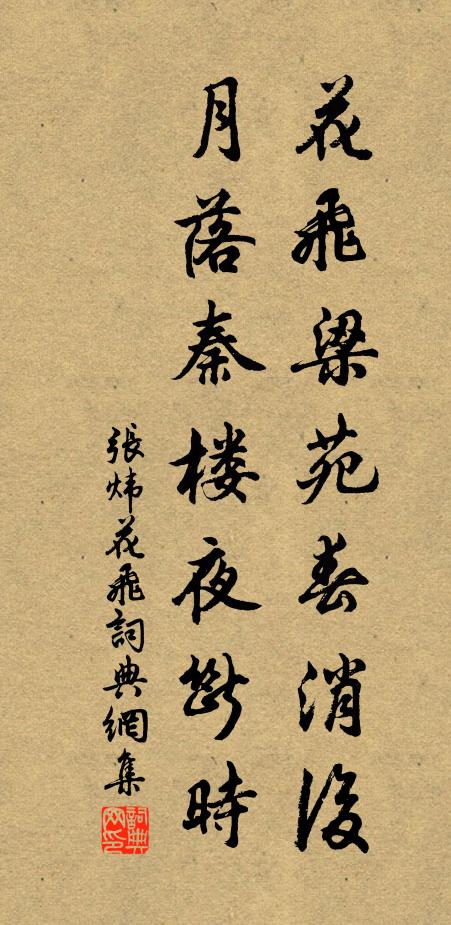 花飛梁苑春消後
月落秦楼夜斷時
張煒花飛詞典網集
詞典网印